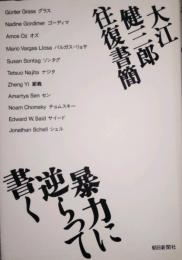 大江健三郎
往復書簡
Günter Grass グラス
Nadine Gordimer ゴーディマ
Amos Oz オズ
Mario Vargas Llosa バルガス・リョサ
Susan Sontag ソンタグ
Tetsuo Najita ナジタ
Zheng Yi 鄭義
Amartya Sen セン
Noam Chomsky チョムスキー
Edward W. Said サイード
Jonathan Schell シェル
暴力に
逆らって
書く
朝日新聞社